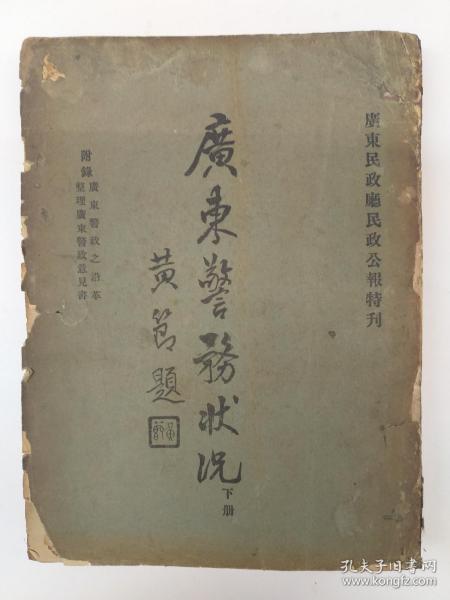 廣東民政廳民政公報特刊
廣東警務狀況
下册
黄節題
黄節
附錄
廣東警政之沿革
整理廣東警政意見書
孔夫子旧书网
www.kongfz.com